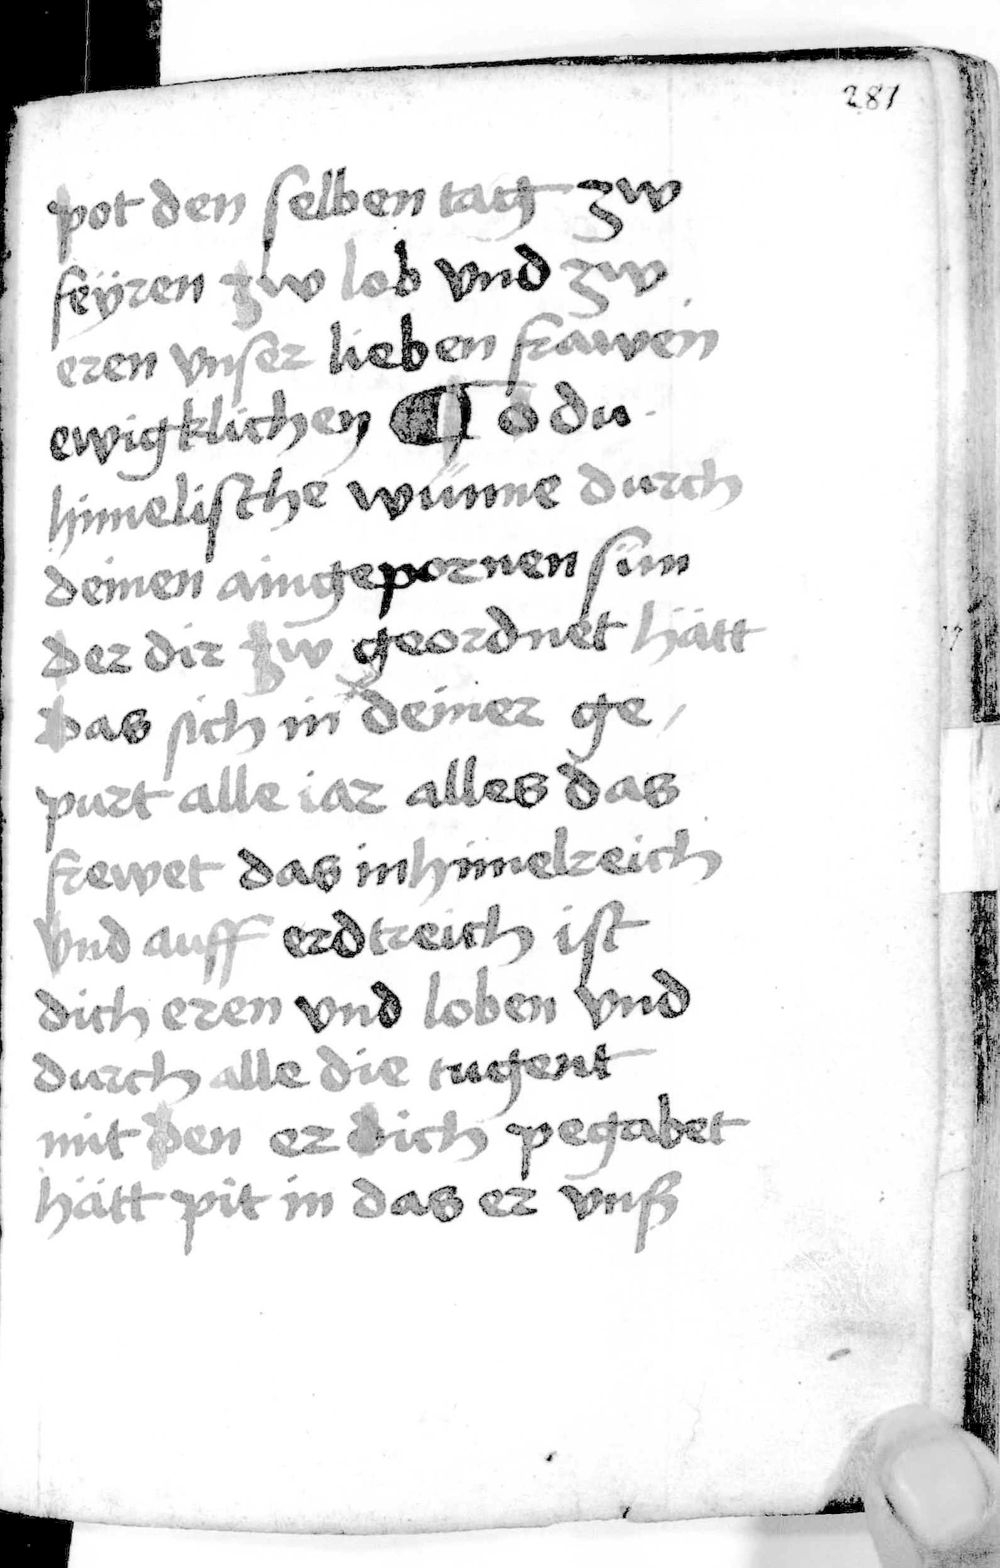 281
pot den selben tag zw
feÿren zw lob vnd zw
eren vnser lieben frawen
ewigklichen ¶ o du
himelische wúnne durch
deinen aingepornen sun
der dir zw geordnet hátt
das sich in deiner ge
purt alle iar alles das
frewet das in himelreich
vnd auff erdtreich ist
dich eren vnd loben vnd
durch alle die tugent
mit den er dich pegabet
hátt pit in das er vnß